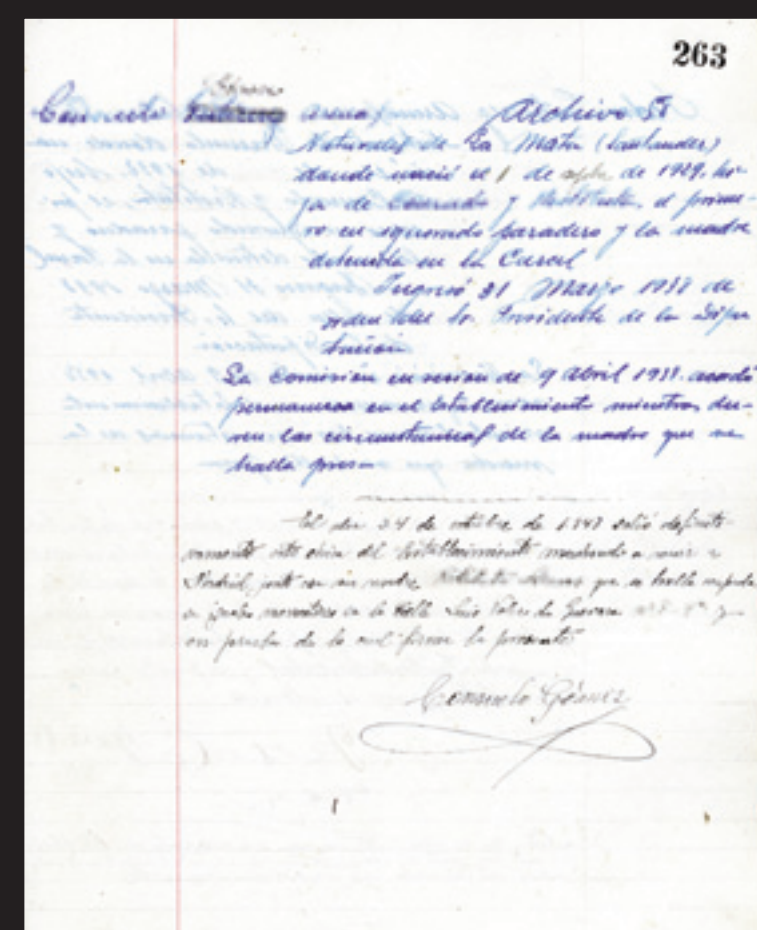 263
Gómez
Consuelo Arenas Archivo 51
Natural de La Mata (Santander)
donde nació el 1 de sptbre de 1929, hi-
ja de Conrado y Restituta, el prime-
ro en ignorado paradero y la madre
detenida en la Carcel
Ingresó 31 Marzo 1938 de
orden del Sr. Presidente de la Dipu
tación
La Comisión en sesion de 9 abril 1938. acordó
permanezca en el Establecimiento mientras du-
ren las circunstancias de la madre que se
halla presa
El dia 24 de octubre de 1947 salió definiti-
vamente esta chica del Establecimiento marchando a vivir a
Madrid, junto con su madre, Restituta Arenas que se halla
en la Calle Luis Velez de Guevara y
en prueba de lo cual firma la presente
Consuelo Gómez